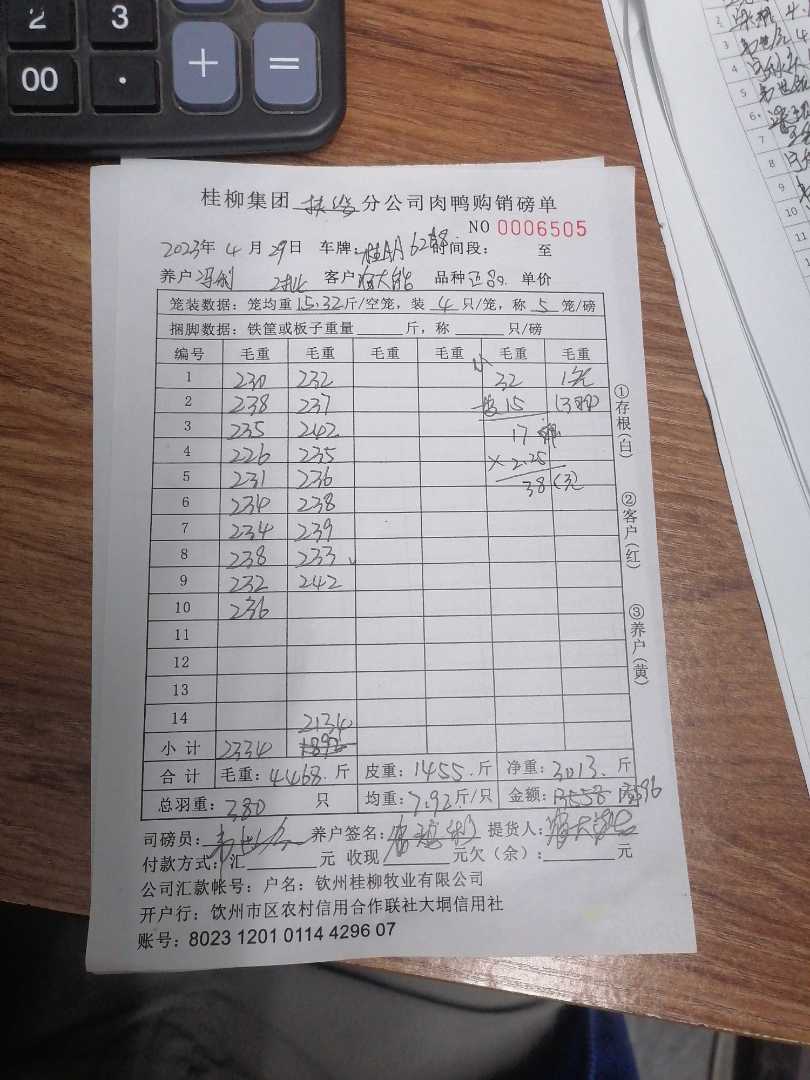 2 3
00 · + =
2
3
4
5
6
7
8
9
10
11
桂柳集团 分公司肉鸭购销磅单
NO 0006505
2023年 4 月 29日 车牌: 时间段: 至
养户 冯利 2批 客户 品种 正品 单价
笼装数据: 笼均重 15.32 斤/空笼, 装 4 只/笼, 称 5 笼/磅
捆脚数据: 铁筐或板子重量 斤, 称 只/磅
编号 毛重 毛重 毛重 毛重 毛重 毛重
1 230 232 小 32
2 238 237 15
3 235 242 17
4 226 235 ×2.25
5 231 236 38 (元)
6 234 238
7 234 239
8 238 233
9 232 242
10 236
11
12
13
14 2134
小计 2334 1892
合计 毛重: 4468. 斤 皮重: 1455. 斤 净重: 3013. 斤
总羽重: 380 只 均重: 7.92 斤/只 金额: 13558
司磅员: 养户签名: 提货人:
付款方式: 汇 元 收现 元欠(余): 元
公司汇款帐号: 户名: 钦州桂柳牧业有限公司
开户行: 钦州市区农村信用合作联社大垌信用社
账号: 8023 1201 0114 4296 07
①存根(白)
②客户(红)
③养户(黄)